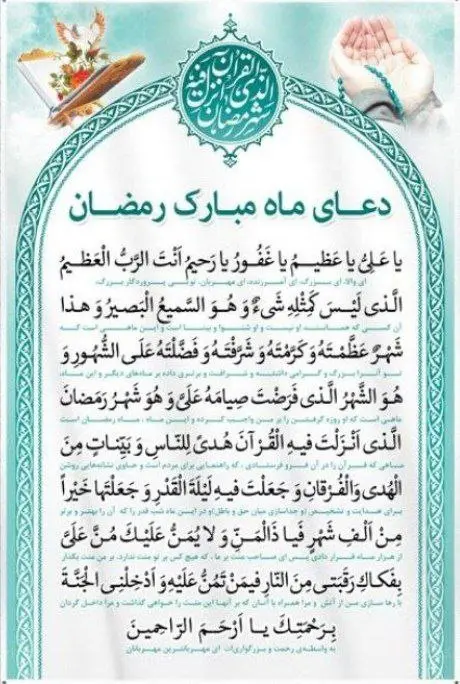 شهر رمضان الذي أنزل فيه القرآن
دعـای ماه مبارک رمضـان
یا عَلِیُّ یا عَظیـمُ یا غَفُورُ یا رَحیمُ اَنْتَ الرَّبُّ الْعَظیمُ
ای والا، ای بـــزرگ، ای آمـرزنده، ای مهـربان، توئـی پـروردگار بـزرگ،
الَّذی لَیْسَ کَمِثْلِهِ شَیْءٌ وَ هُوَ السَّمیعُ الْبَصیرُ وَ هذا
آن کسی که همـاننـدش نیست و او شنـوا و بینـا است و ایـن مـاهی اسـت کـه
شَهْرٌ عَظَّمْتَهُ وَ کَرَّمْتَهُ وَ شَرَّفْتَهُ وَ فَضَّلْتَهُ عَلَی الشُّهُورِ وَ
تـو آنـرا بـزرگ و گـرامی داشتـه و شـرافت و برتری داده بر ماه‌های دیگر و این ماه،
هُوَ الشَّهْرُ الَّذی فَرَضْتَ صِیامَهُ عَلَیَّ وَ هُوَ شَهْرُ رَمَضانَ
ماهی است که تو روزه گرفتنش را بر من واجب کـرده و این ماه ، ماه رمضان است
الَّذی اَنْزَلْتَ فیهِ الْقُرْآنَ هُدیً لِلنّاسِ وَ بَیِّناتٍ مِنَ
ماهی که قـرآن را در آن فرو فرستـادی ، که راهنمایی برای مردم است و حاوی نشانه‌هایی روشن
الْهُدی وَالْفُرْقانِ وَ جَعَلْتَ فیهِ لَیْلَةَ الْقَدْرِ وَ جَعَلْتَها خَیْراً
برای هـدایت و تشخیـص (و جداسازی میان حق و باطل)و در ایـن ماه شب قدر را که آن را بهتر و برتر
مِنْ اَلْفِ شَهْرٍ فَیا ذَالْمَنِّ وَ لا یُمَنُّ عَلَیْكَ مُنَّ عَلَیَّ
از هـزار مـاه قـرار دادی پس ای صـاحب منت بر ما ، که هیچ کس بر تو منت ندارد، بر من منت بگذار
بِفَکاكِ رَقَبَتی مِنَ النّارِ فیمَنْ تَمُنُّ عَلَیْهِ وَ اَدْخِلْنِی الْجَنَّةَ
با رها سازی من از آتش و مرا همراه با آنان که بر آنهـا این منت را خواهی گذاشت و مرا داخل گردان
بِـرَحْمَتِـكَ یـا اَرْحَمَ الرّاحِمیـنَ
به واسطه‌ی رحمت و بزرگواری‌ات ای مهربانترین مهربانان